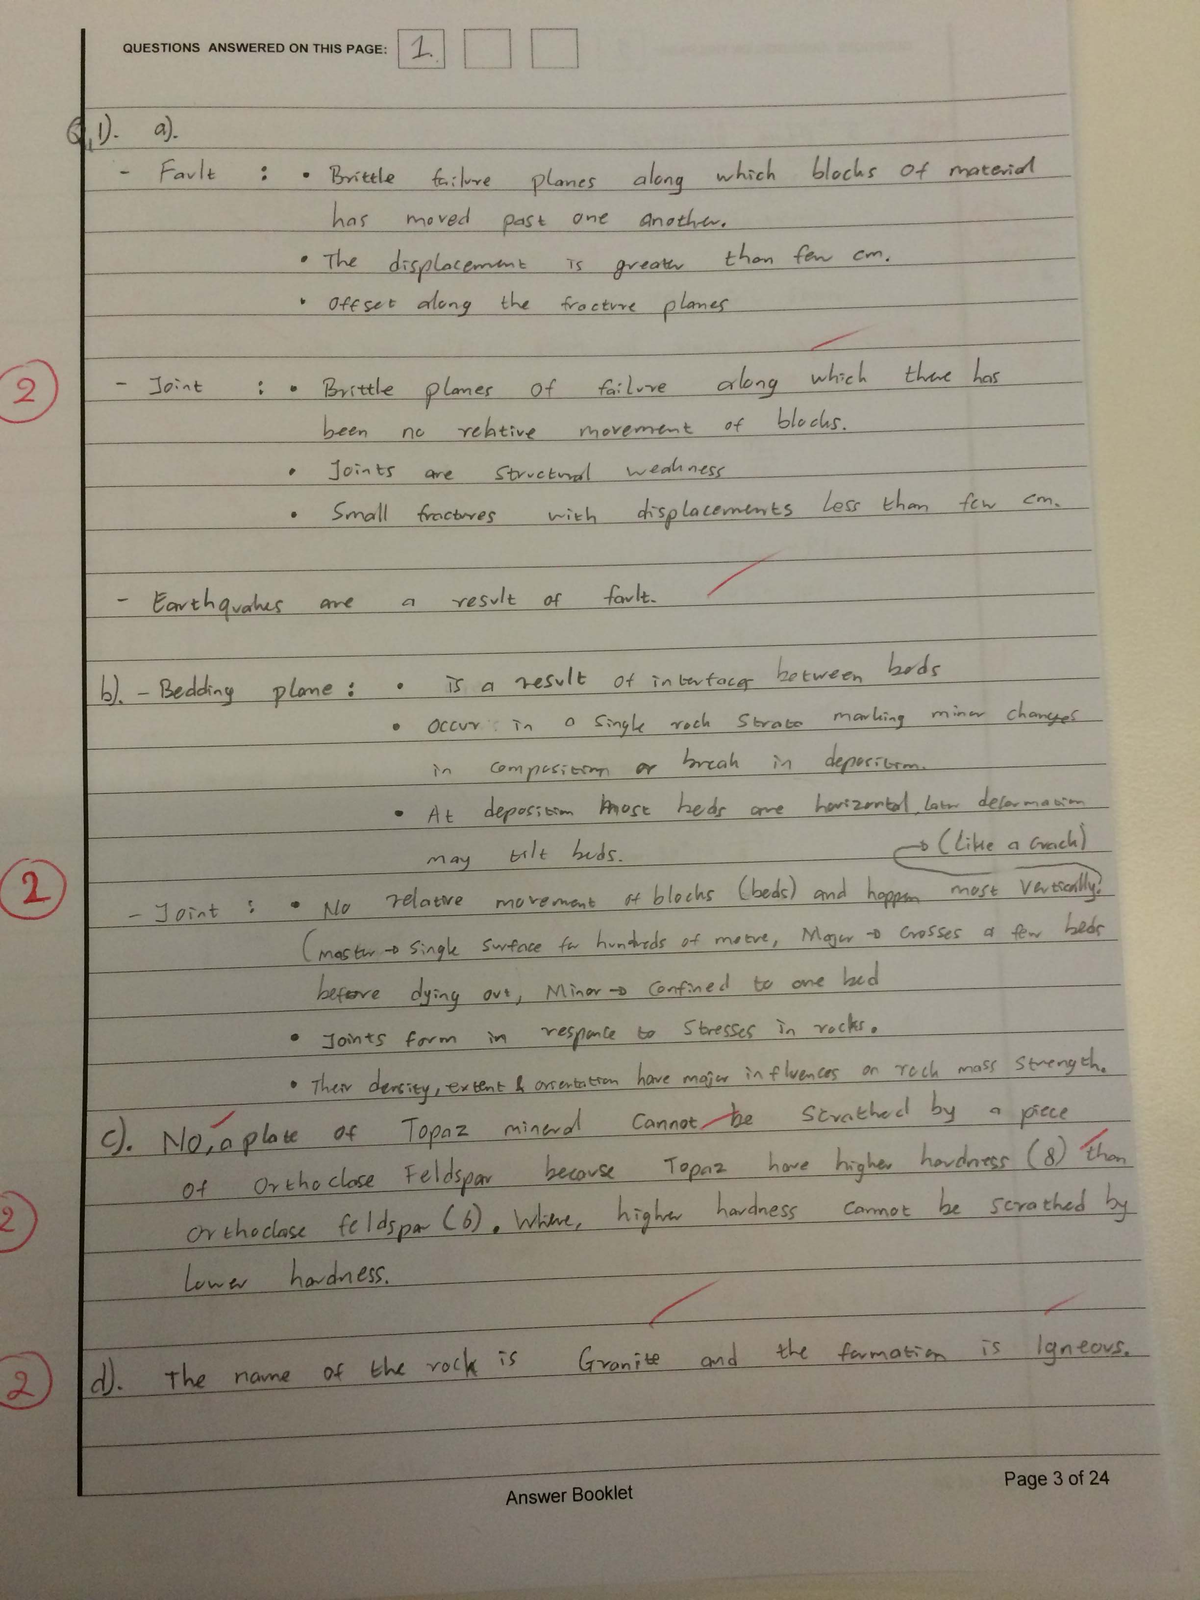 QUESTIONS ANSWERED ON THIS PAGE: 1.
Q1). a).
- Fault : • Brittle failure planes along which blocks of material
has moved past one another.
• The displacement is greater than few cm.
• Offset along the fracture planes
2
- Joint : • Brittle planes of failure along which there has
been no relative movement of blocks.
• Joints are structural weakness
• Small fractures with displacements less than few cm.
- Earthquakes are a result of fault.
b). - Bedding plane : • is a result of interfaces between beds
• occur in a single rock strata marking minor changes
in composition or break in deposition.
• At deposition most beds are horizontal, later deformation
may tilt beds.
→ (like a crack)
2
- Joint : • No relative movement of blocks (beds) and happen most vertically.
(master → single surface for hundreds of metre, Major → crosses a few beds
before dying out, Minor → confined to one bed
• Joints form in responce to stresses in rocks.
• Their density, extent & orientation have major influences on rock mass strength.
c). No, a plate of Topaz mineral cannot be scrathed by a piece
of Orthoclase Feldspar because Topaz have higher hardness (8) than
2
orthoclase feldspar (6). Where, higher hardness cannot be scrathed by
lower hardness.
2
d). The name of the rock is Granite and the formation is Igneous.
Answer Booklet
Page 3 of 24